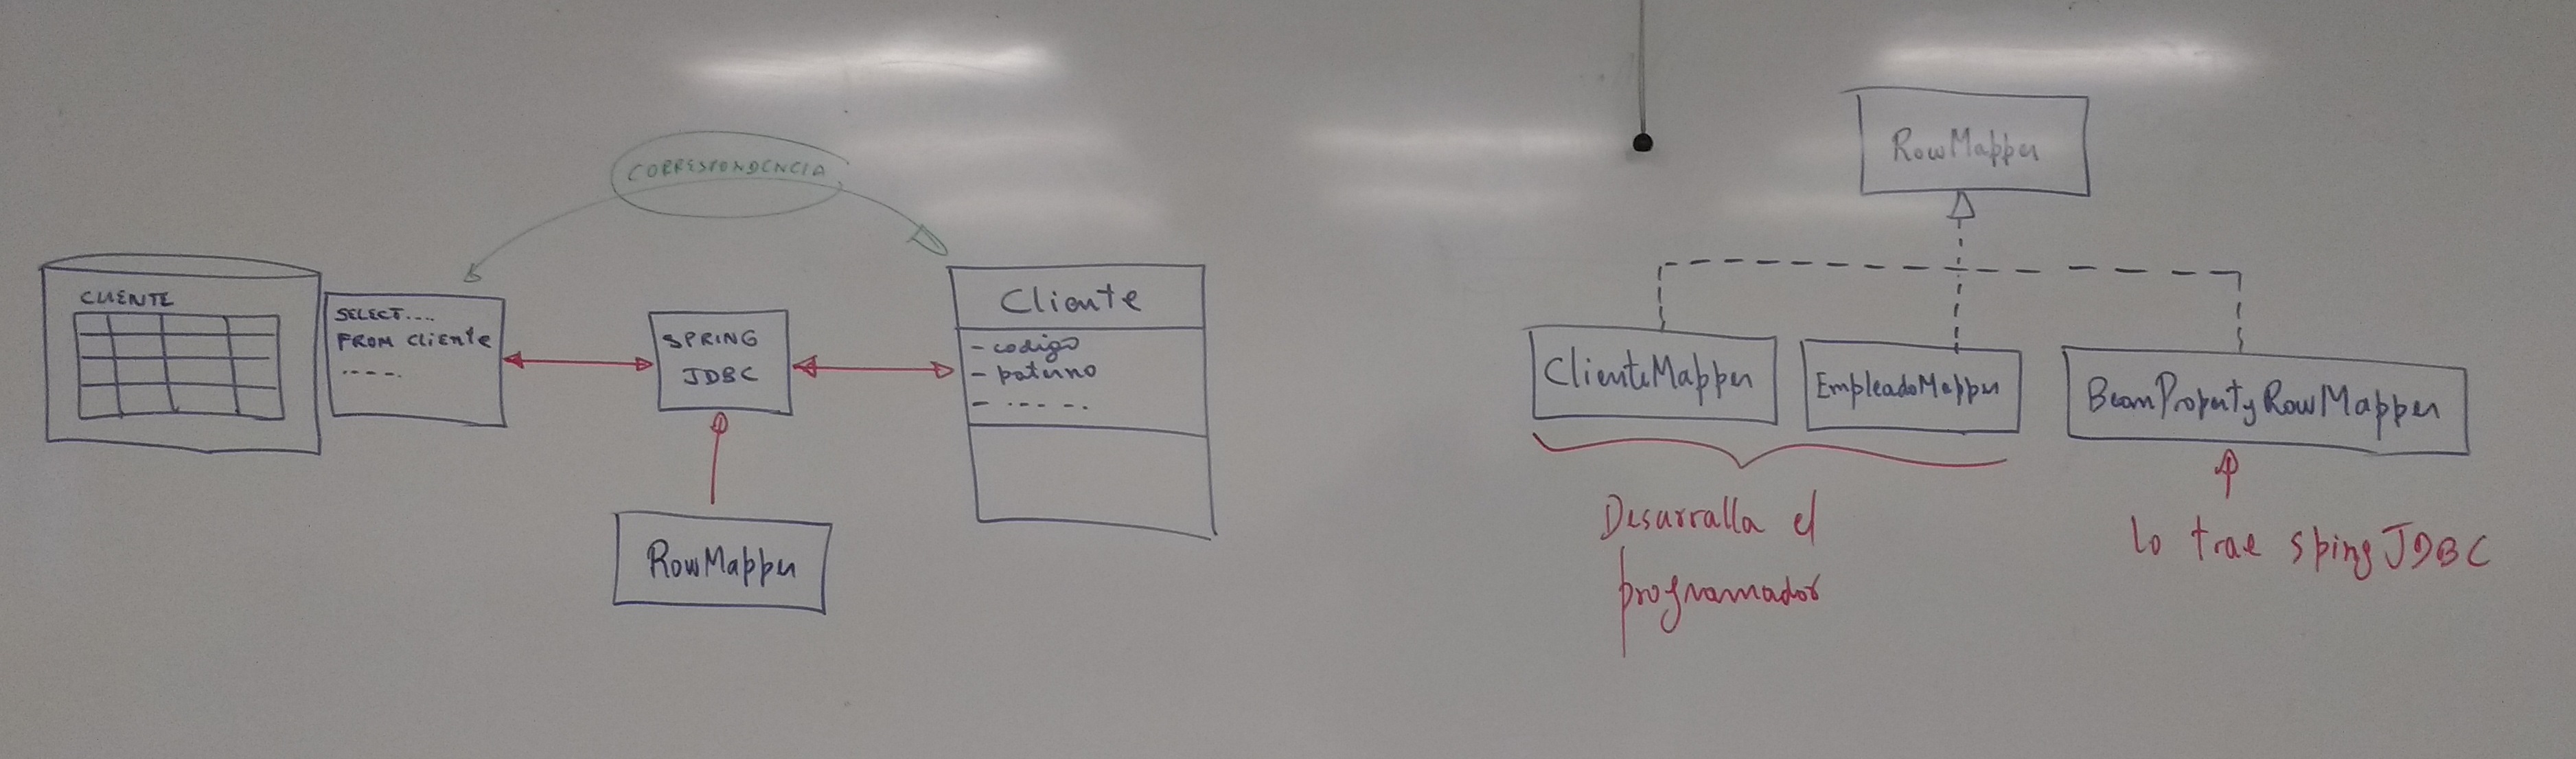 CORRESPONDENCIA
CLIENTE
SELECT....
FROM Cliente
----.
SPRING
JDBC
Cliente
- codigo
- paterno
- .----.
RowMapper
RowMapper
ClienteMapper
EmpleadoMapper
BeanPropertyRowMapper
Desarralla el
programador
lo trae sping JDBC